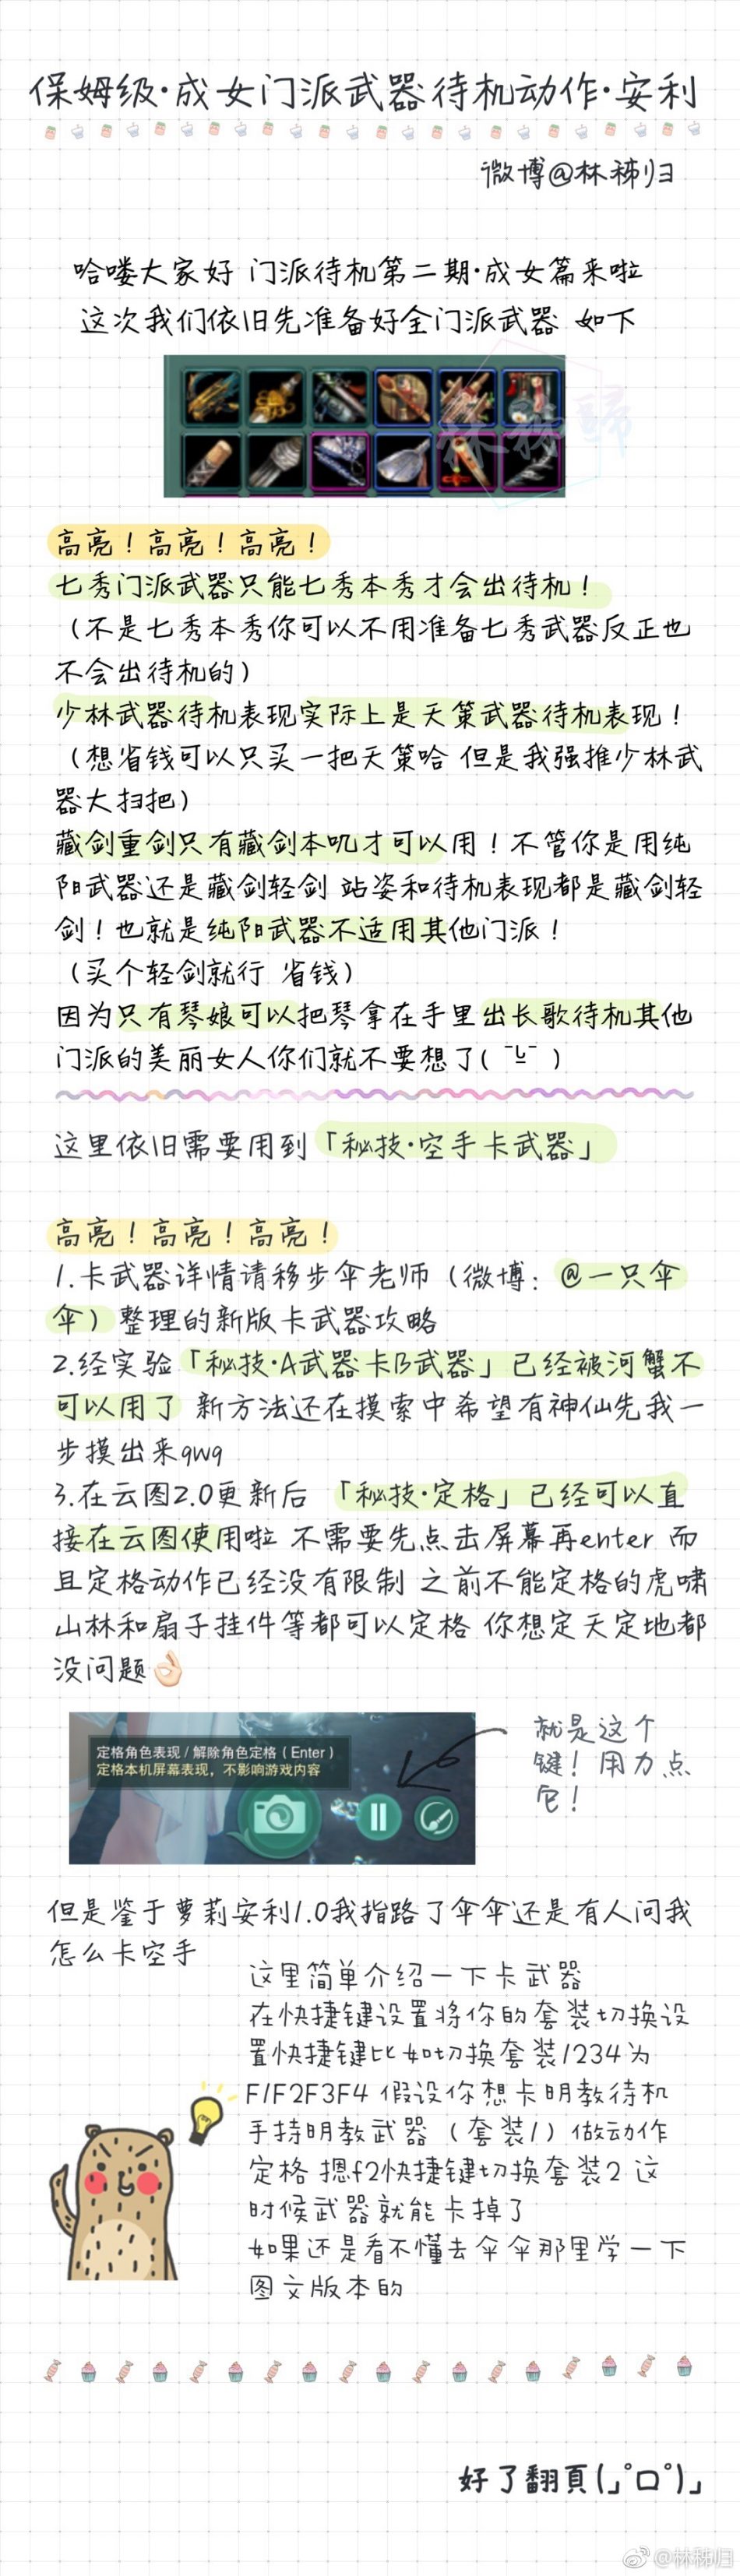 保姆级·成女门派武器待机动作·安利
微博@林秭归
哈喽大家好 门派待机第二期·成女篇来啦
这次我们依旧先准备好全门派武器 如下
林秭歸
高亮！高亮！高亮！
七秀门派武器只能七秀本秀才会出待机！
（不是七秀本秀你可以不用准备七秀武器反正也
不会出待机的）
少林武器待机表现实际上是天策武器待机表现！
（想省钱可以只买一把天策哈 但是我强推少林武
器大扫把）
藏剑重剑只有藏剑本叽才可以用！不管你是用纯
阳武器还是藏剑轻剑 站姿和待机表现都是藏剑轻
剑！也就是纯阳武器不适用其他门派！
（买个轻剑就行 省钱）
因为只有琴娘可以把琴拿在手里出长歌待机其他
门派的美丽女人你们就不要想了( ¯ᒡ̱¯ )
这里依旧需要用到「秘技·空手卡武器」
高亮！高亮！高亮！
1.卡武器详情请移步伞老师（微博：@一只伞
伞）整理的新版卡武器攻略
2.经实验「秘技·A武器卡B武器」已经被河蟹不
可以用了 新方法还在摸索中希望有神仙先我一
步摸出来qwq
3.在云图2.0更新后 「秘技·定格」已经可以直
接在云图使用啦 不需要先点击屏幕再enter 而
且定格动作已经没有限制 之前不能定格的虎啸
山林和扇子挂件等都可以定格 你想定天定地都
没问题👌🏻
定格角色表现 / 解除角色定格（Enter）
定格本机屏幕表现，不影响游戏内容
就是这个
键！用力点
它！
但是鉴于萝莉安利1.0我指路了伞伞还是有人问我
怎么卡空手
这里简单介绍一下卡武器
在快捷键设置将你的套装切换设
置快捷键比如切换套装1234为
F1F2F3F4 假设你想卡明教待机
手持明教武器（套装1）做动作
定格 摁f2快捷键切换套装2 这
时候武器就能卡掉了
如果还是看不懂去伞伞那里学一下
图文版本的
好了翻頁(｣ﾟﾛﾟ)｣
@林秭归